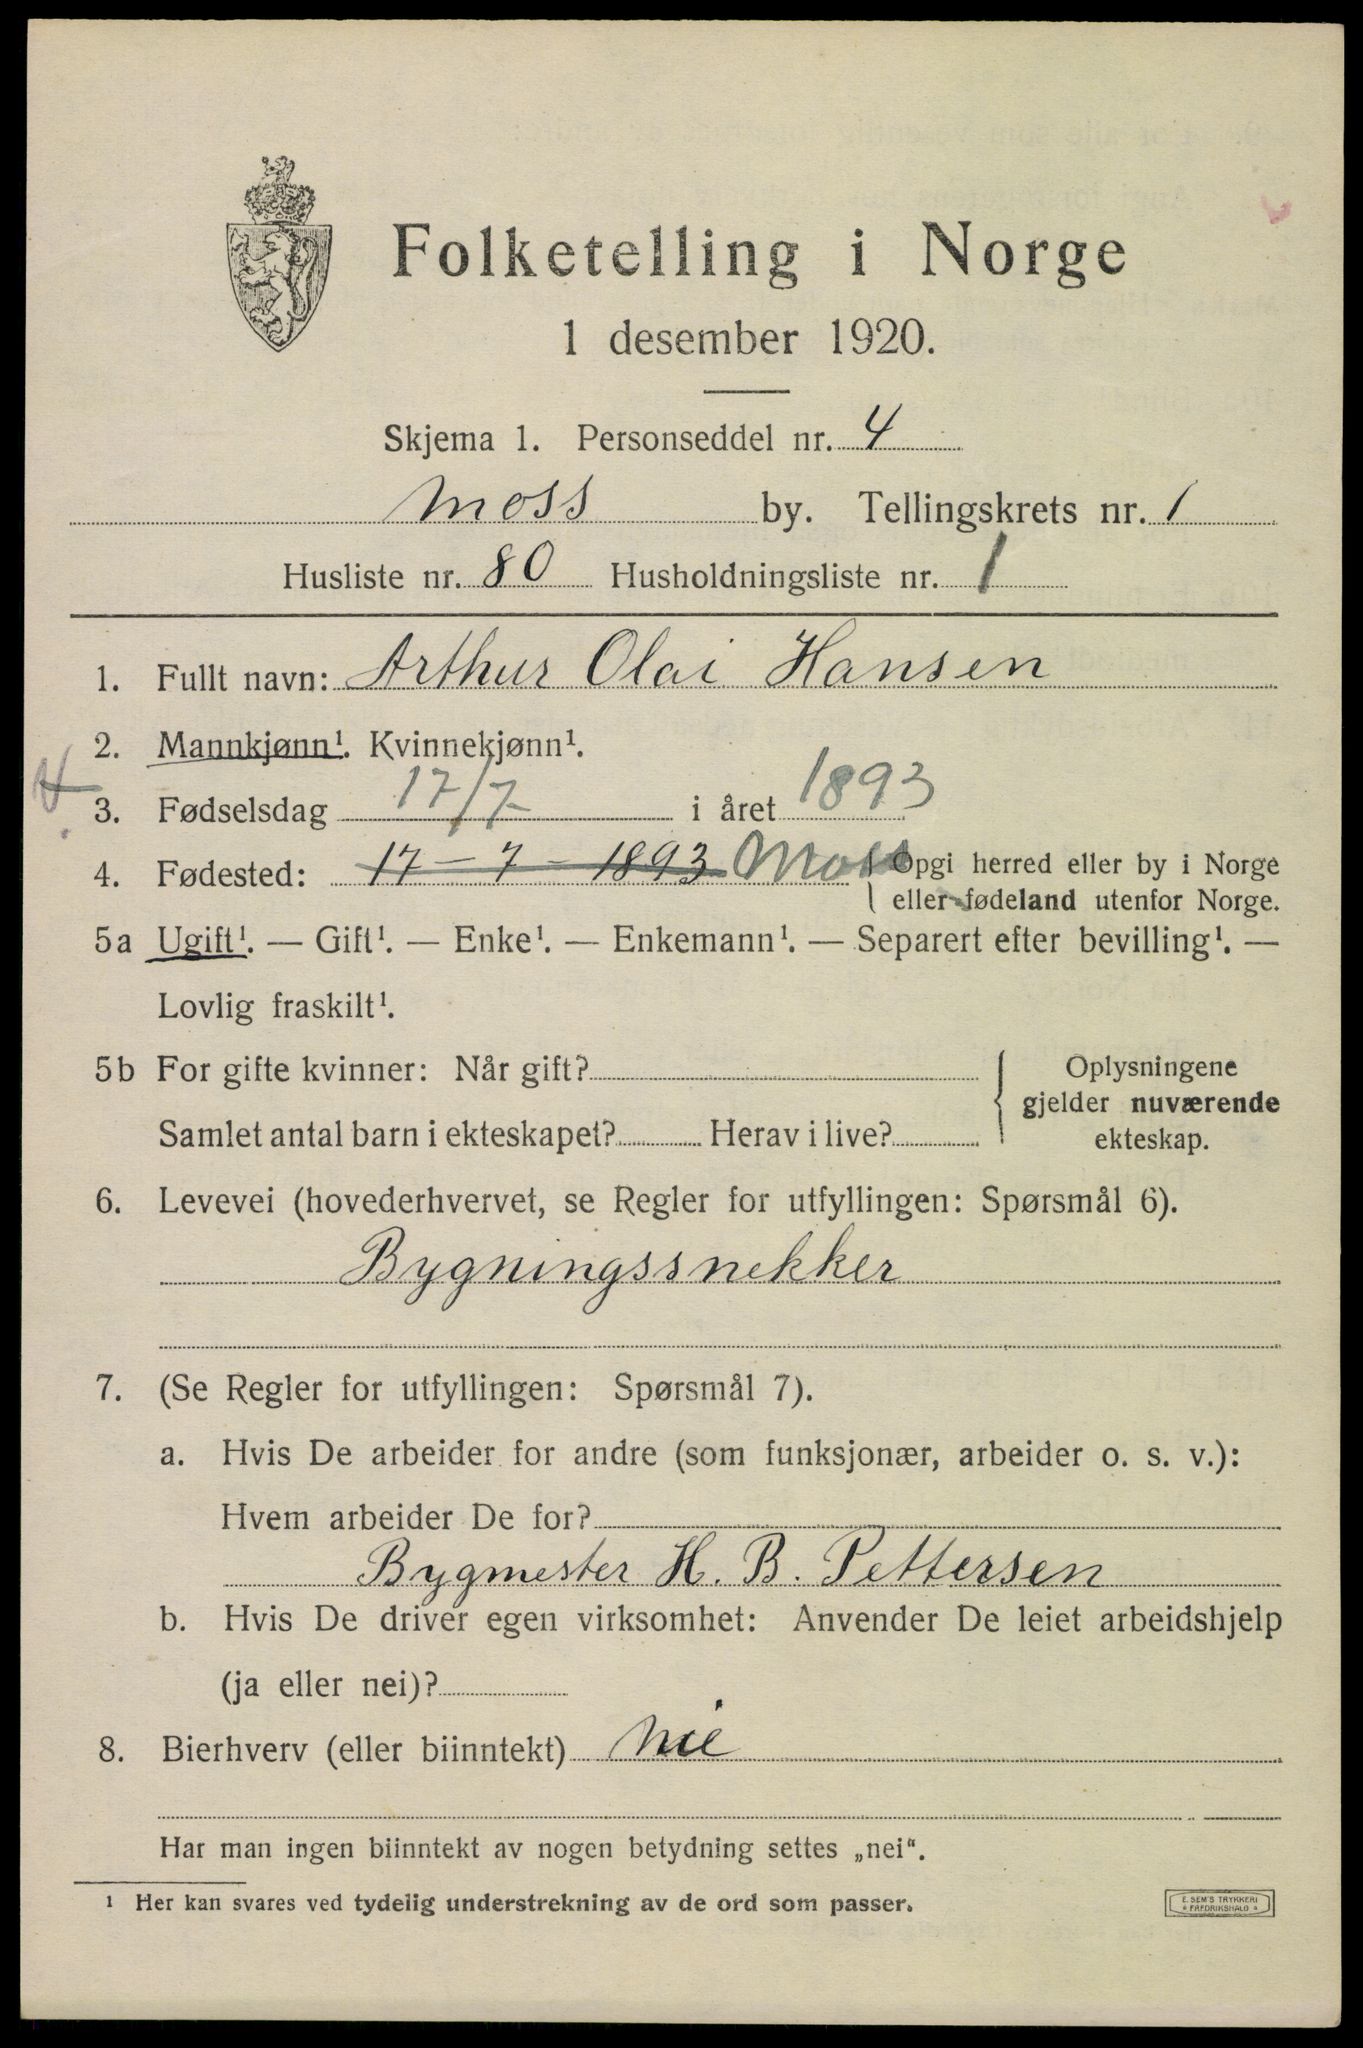 Folketelling i Norge
1 desember 1920.
Skjema 1. Personseddel nr. 4
Moss by. Tellingskrets nr. 1
Husliste nr. 80 Husholdningsliste nr. 1
1. Fullt navn: Arthur Olai Hansen
2. Mannkjønn¹. Kvinnekjønn¹.
3. Fødselsdag 17/7 i året 1893
4. Fødested: 17 – 7 – 1893 Moss Opgi herred eller by i Norge
eller fødeland utenfor Norge.
5a Ugift¹. — Gift¹. — Enke¹. — Enkemann¹. — Separert efter bevilling¹. —
Lovlig fraskilt¹.
5b For gifte kvinner: Når gift? Oplysningene
gjelder nuværende
Samlet antal barn i ekteskapet? Herav i live? ekteskap.
6. Levevei (hovederhvervet, se Regler for utfyllingen: Spørsmål 6).
Bygningssnekker
7. (Se Regler for utfyllingen: Spørsmål 7).
a. Hvis De arbeider for andre (som funksjonær, arbeider o. s. v.):
Hvem arbeider De for?
Bygmester H. B. Pettersen
b. Hvis De driver egen virksomhet: Anvender De leiet arbeidshjelp
(ja eller nei)?
8. Bierhverv (eller biinntekt) Nie
Har man ingen biinntekt av nogen betydning settes „nei“.
¹ Her kan svares ved tydelig understrekning av de ord som passer.
E. SEM'S TRYKKERI
FREDRIKSHALD